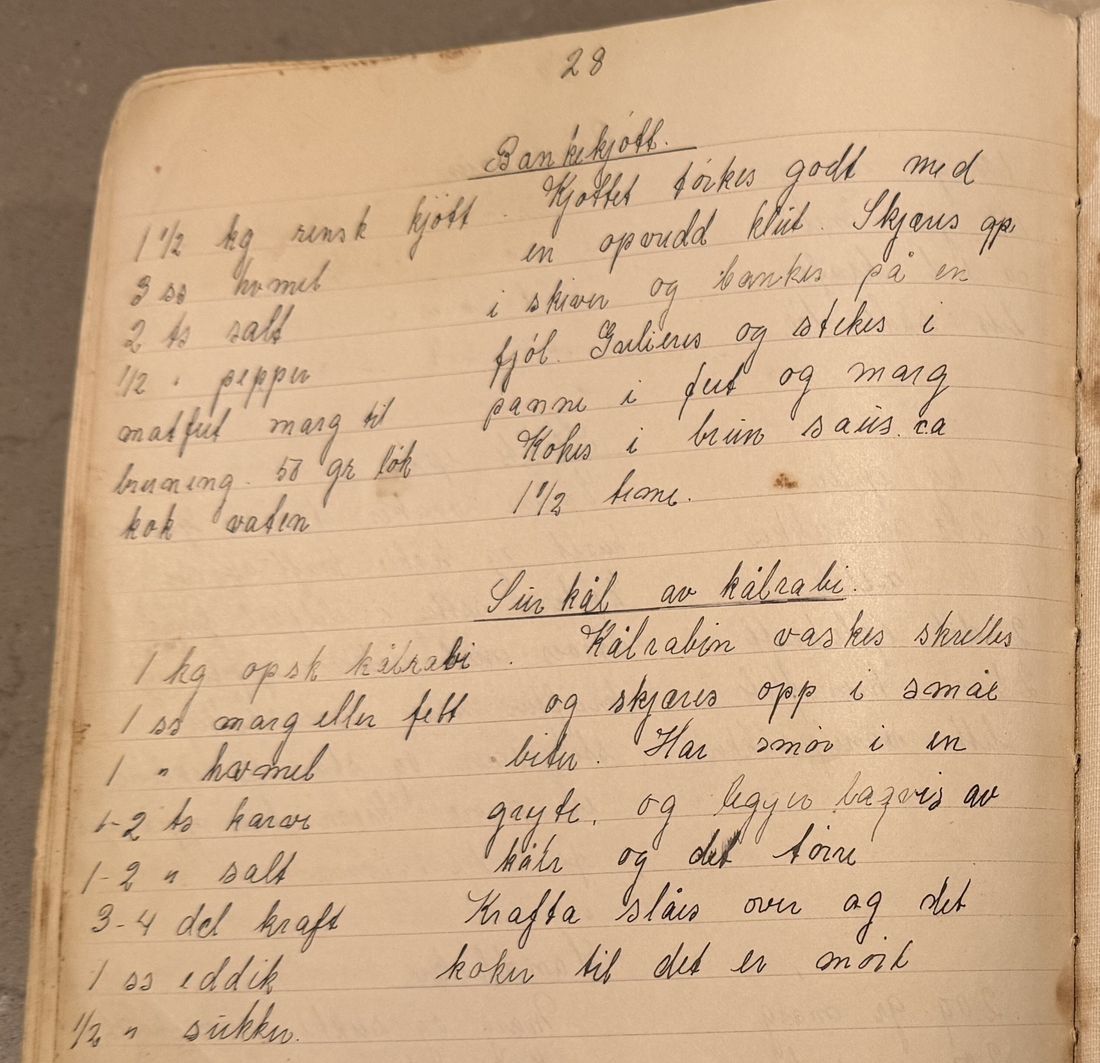 28
Bankekjøtt.
1 1/2 kg rensk kjøtt.
3 ss hvmel
2 ts salt
1/2 " pepper
matfett marg til
bruning. 50 gr løk
kok vaten
Kjøttet tørkes godt med
en opvridd klut. Skjæres op
i skiver og bankes på en
fjøl. Grilieres og stekes i
panne i fett og marg
Kokes i brun saus. ca
1 1/2 time.
Surkål av kålrabi.
1 kg opsk kålrabi.
1 ss marg eller fett
1 " hvmel
1-2 ts karve
1-2 " salt
3-4 del kraft
1 ss eddik
1/2 " sukker.
Kålrabin vaskes skrelles
og skjæres opp i småe
biter. Har smør i en
gryte, og legger lagvis av
kålr og det tørre
Krafta slåes over og det
koker til det er mørt